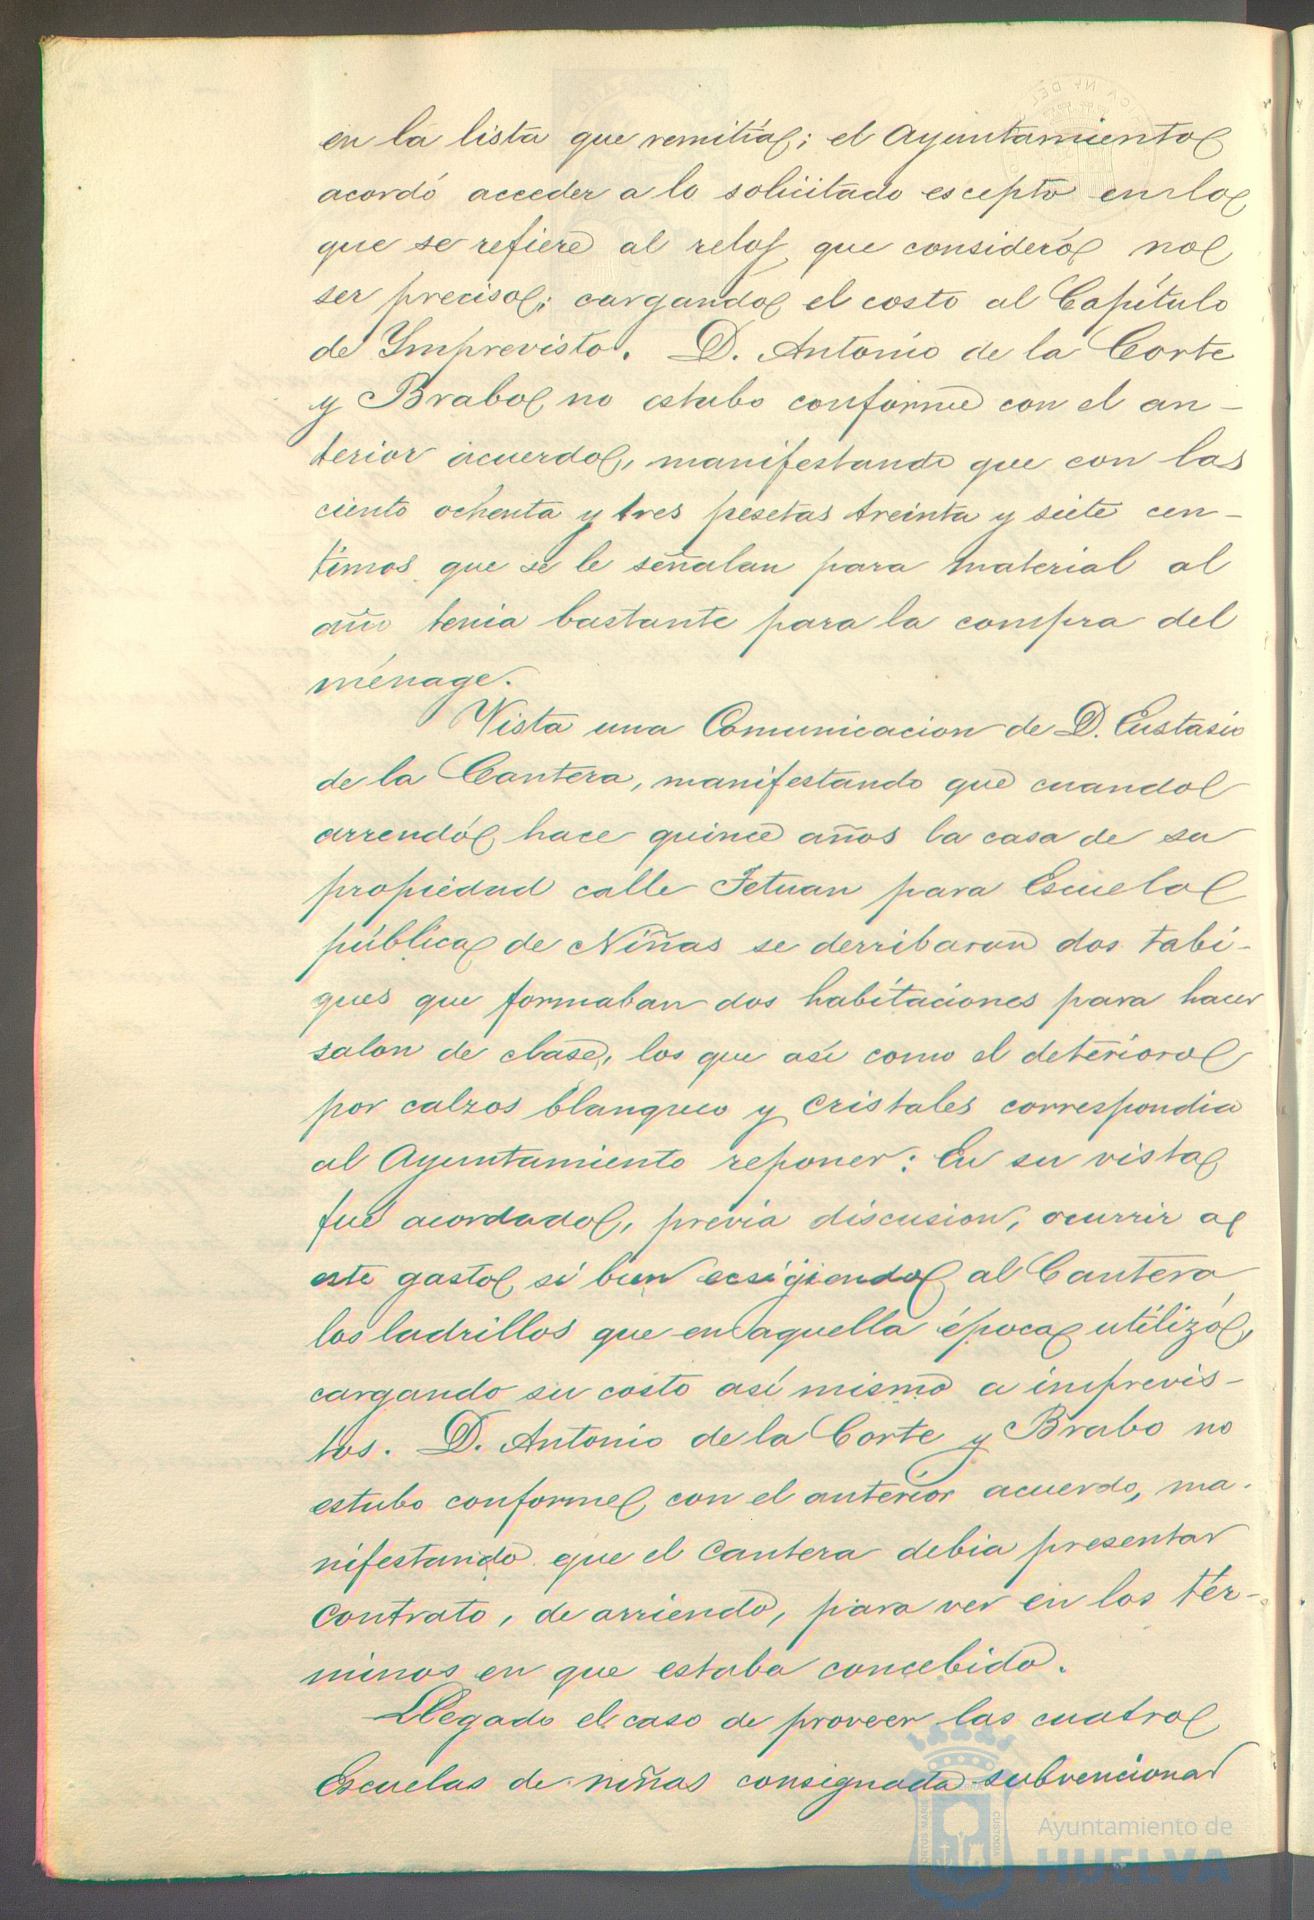 en la lista que remitía; el Ayuntamiento
acordó acceder a lo solicitado escepto en lo
que se refiere al reloj que consideró no
ser preciso; cargando el costo al Capítulo
de Ymprevisto. D. Antonio de la Corte
y Brabo no estubo conforme con el an-
terior acuerdo, manifestando que con las
ciento ochenta y tres pesetas treinta y siete cen-
timos que se le señalan para material al
año tenia bastante para la compra del
ménage.
Vista una Comunicacion de D. Eustasio
de la Cantera, manifestando que cuando
arrendó hace quince años la casa de su
propiedad calle Tetuan para Escuela
pública de Niñas se derribaron dos tabi-
ques que formaban dos habitaciones para hacer
salon de clase, los que así como el deterioro
por calzos blanqueo y cristales correspondia
al Ayuntamiento reponer: En su vista
fué acordado, previa discusion, ocurrir a
este gasto si bien ecsigiendo al Cantera
los ladrillos que en aquella época utilizó,
cargando su costo así mismo a imprevis-
tos. D. Antonio de la Corte y Brabo no
estubo conforme con el anterior acuerdo, ma-
nifestando que el Cantera debia presentar
contrato, de arriendo, para ver en los tér-
minos en que estaba concebido.
Llegado el caso de proveer las cuatro
Escuelas de niñas consignada subvencionar
Ayuntamiento de
HUELVA